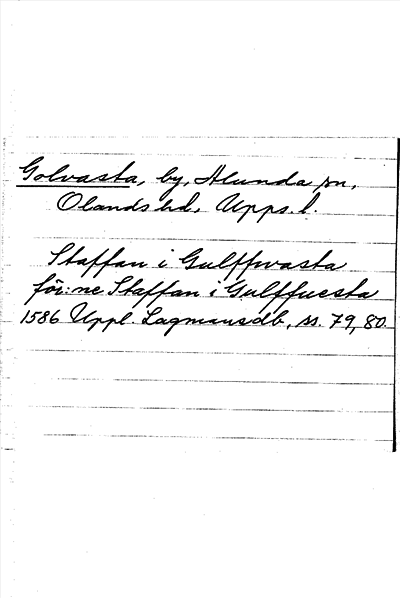 Golvasta, by, Alunda sn,
Olands hd, Upps. l.
Staffan i Gulffwasta
för:ne Staffan i Gulffuesta
1586 Uppl. Lagmansdb, ss. 79, 80.